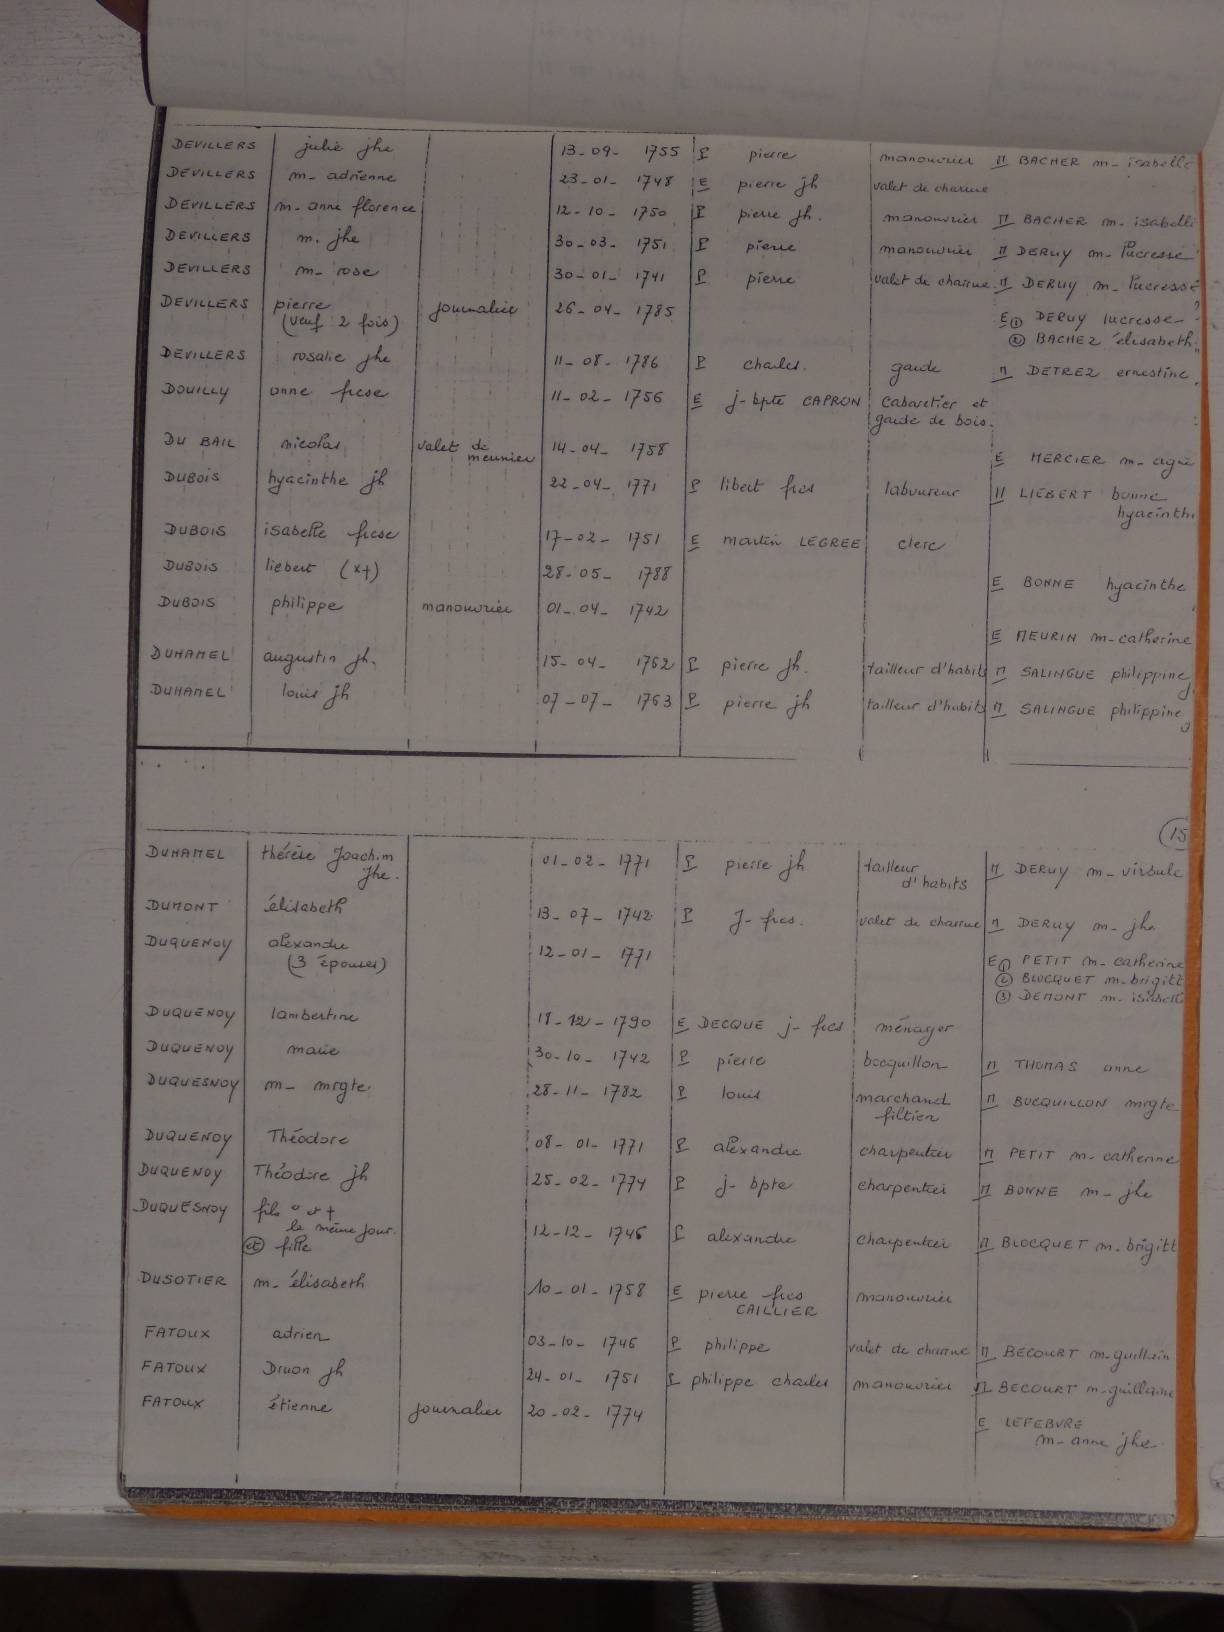 DEVILLERS julie jhe 13-09- 1755 P pierre manouvrier M BACHER m- isabelle
DEVILLERS m- adrienne 23-01- 1748 E pierre jh valet de charrue
DEVILLERS m- anne florence 12-10- 1750 P pierre jh. manouvrier M BACHER m- isabelle
DEVILLERS m. jhe 30-03- 1751 P pierre manouvrier M DERUY m- lucresse
DEVILLERS m- rose 30-01- 1741 P pierre valet de charrue M DERUY m- lucresse
DEVILLERS pierre journalier 26-04- 1785 E ① DERUY lucresse
(veuf 2 fois) ② BACHEZ élisabeth
DEVILLERS rosalie jhe 11-08- 1786 P charles. garde M DETREZ ernestine
DOUILLY anne frcse 11-02- 1756 E j-bpte CAPRON cabaretier et
garde de bois.
DU BAIL nicolas valet de 14-04- 1758 E MERCIER m- agnè
meunier
DUBOIS hyacinthe jh 22-04- 1771 P libert frcs laboureur M LIEBERT bonne
hyacinthe
DUBOIS isabelle frcse 17-02- 1751 E martin LEGREE clerc
DUBOIS liebert (x+) 28-05- 1788 E BONNE hyacinthe
DUBOIS philippe manouvrier 01-04- 1742 E MEURIN m-catherine
DUHAMEL augustin jh. 15-04- 1762 P pierre jh. tailleur d'habits M SALINGUE philippine
DUHAMEL louis jh 07-07- 1763 P pierre jh tailleur d'habits M SALINGUE philippine
15
DUHAMEL thérèse Joachim 01-02- 1771 P pierre jh tailleur M DERUY m- virsule
jhe. d'habits
DUMONT élisabeth 13-07- 1742 P J-frcs. valet de charrue M DERUY m- jhe
DUQUENOY alexandre 12-01- 1771 E ① PETIT m- catherine
(3 épouses) ② BLOCQUET m-brigitt
③ DEMONT m. isabelle
DUQUENOY lambertine 18-12-1790 E DECQUE j- frcs ménager
DUQUENOY marie 30-10- 1742 P pierre bocquillon M THOMAS anne
DUQUESNOY m- mrgte 28-11- 1782 P louis marchand M BOCQUILLON mrgte
filtier
DUQUENOY Théodore 08-01-1771 P alexandre charpentier M PETIT m- catherine
DUQUENOY Théodore jh 25-02-1774 P j- bpte charpentier M BONNE m- jhe
DUQUESNOY fils ° et +
le même jour. 12-12- 1746 P alexandre charpentier M BLOCQUET m-brigitt
(et) fille
DUSOTIER m- élisabeth 10-01-1758 E pierre frcs manouvrier
CAILLIER
FATOUX adrien 03-10- 1746 P philippe valet de charrue M BECOURT m-guillain
FATOUX Druon jh 24-01- 1751 P philippe charles manouvrier M BECOURT m-guillaine
FATOUX étienne journalier 20-02- 1774 E LEFEBVRE
m- anne jhe